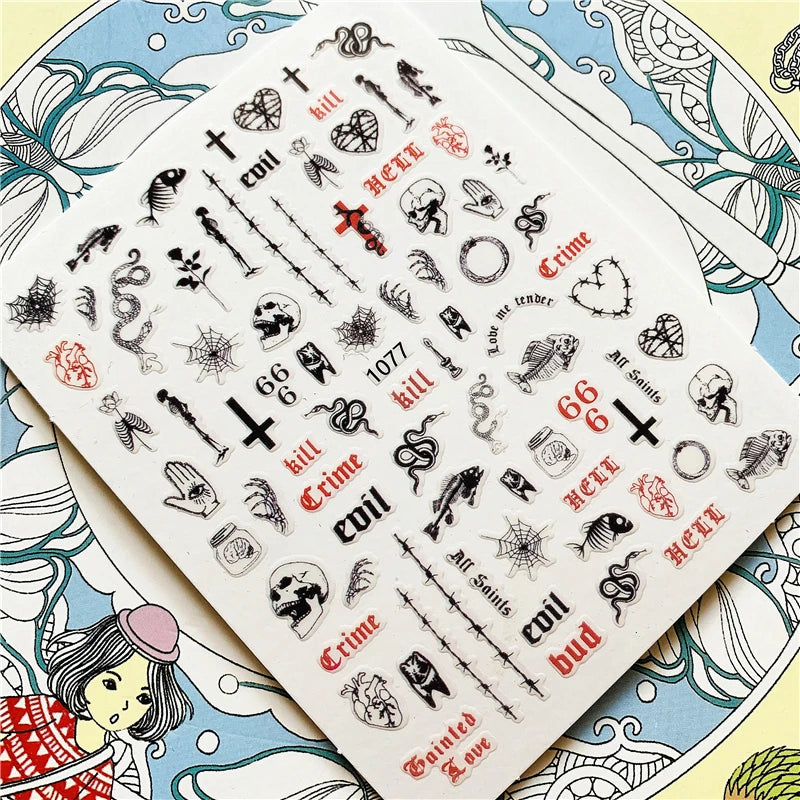 kill
evil
HELL
Crime
Love me tender
66
6
1077
kill
All Saints
66
6
kill
Crime
evil
HELL
HELL
All Saints
evil
bud
Crime
Tainted
Love